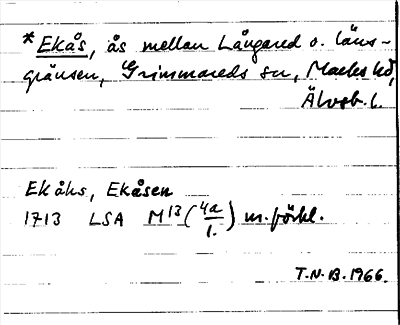 *Ekås, ås mellan Långared o. läns-
gränsen, Grimmareds sn, Marks hd,
Älvsb. l.
Ekåhs, Ekåsen
1713 LSA M13 (4a/1.) m. förkl.
T.N.B. 1966.